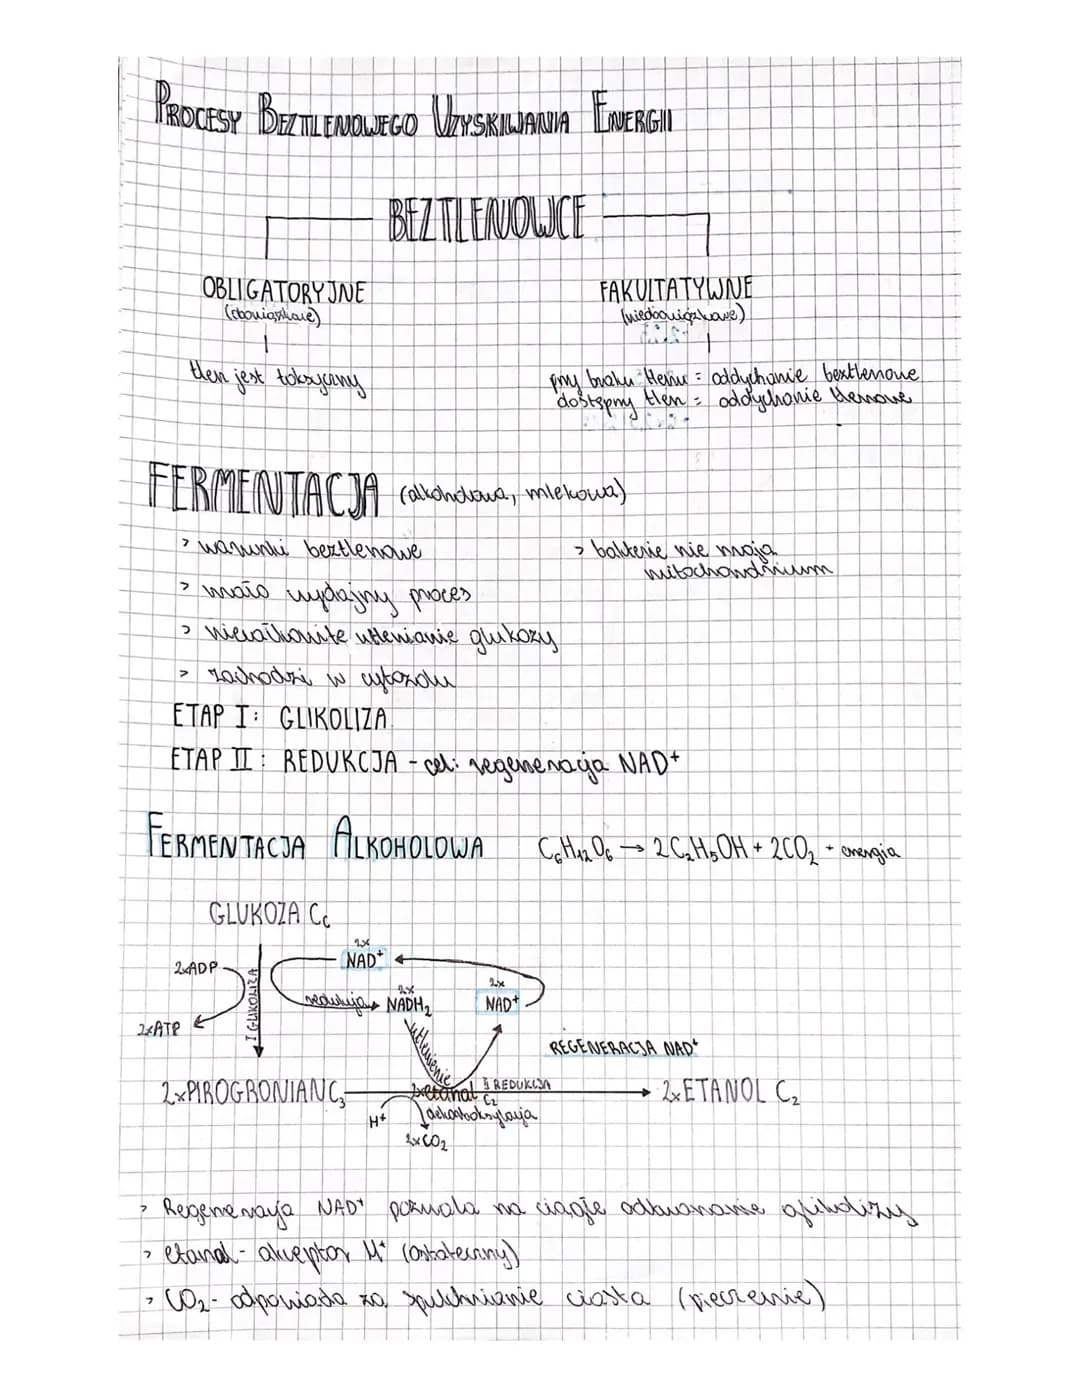 PROCESY BEZTLENOWEGO UZYSKIWANIA ENERGII
BEZTLENOWCE
OBLIGATORYJNE
(obowiązkowe)
tlen jest toksyczny
FAKULTATYWNE
(nieobowiązkowe)
przy braku tlenu = oddychanie beztlenowe
dostępny tlen = oddychanie tlenowe
FERMENTACJA (alkoholowa, mlekowa)
> warunki beztlenowe
> bakterie nie mają
mitochondrium
> mało wydajny proces
> niecałkowite utlenianie glukozy
> zachodzi w cytozolu
ETAP I: GLIKOLIZA
ETAP II: REDUKCJA - cel: regeneracja NAD⁺
FERMENTACJA ALKOHOLOWA C₆H₁₂O₆ → 2C₂H₅OH + 2CO₂ + energia
GLUKOZA C₆
2xADP
2xATP
I GLIKOLIZA
2x
NAD⁺
redukuja
2x
NADH₂
2x
NAD⁺
utlenienie
REGENERACJA NAD⁺
2xPIROGRONIAN C₃
2xetanal C₂
II REDUKCJA
2xETANOL C₂
H⁺
dekarboksylacja
2xCO₂
> Regeneracja NAD⁺ pozwala na ciągłe odtwarzanie glikolizy
> etanal - akceptor H⁺ (ostateczny)
> CO₂ - odpowiada za spulchnianie ciasta (pieczenie)